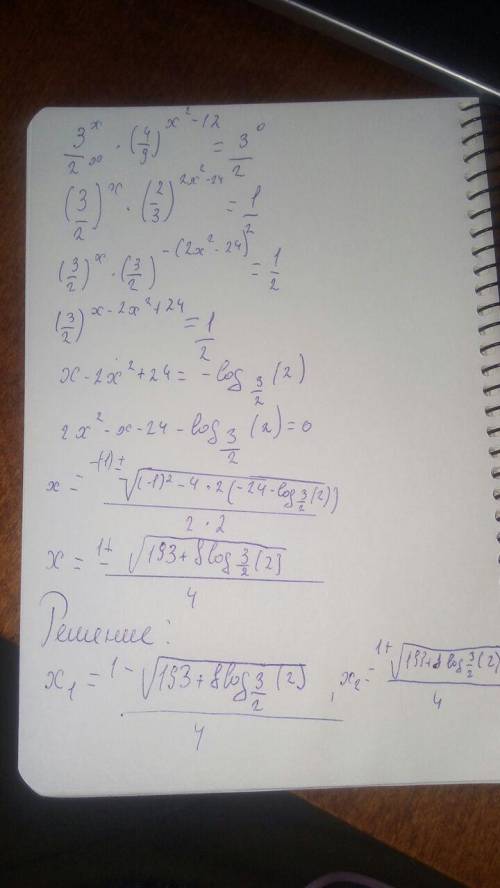 3^x/2^x · (4/9)^(x²-12) = 3^0/2
(3/2)^x · (2/3)^(2x²-24) = 1/2
(3/2)^x · (3/2)^(-(2x²-24)) = 1/2
(3/2)^(x-2x²+24) = 1/2
x-2x²+24 = -log_(3/2)(2)
2x²-x-24-log_(3/2)(2)=0
x = (-(-1)±√((-1)²-4·2(-24-log_(3/2)(2))))/(2·2)
x = (1±√(193+8log_(3/2)(2)))/4
Решение:
x₁ = (1-√(193+8log_(3/2)(2)))/4, x₂ = (1+√(193+8log_(3/2)(2)))/4